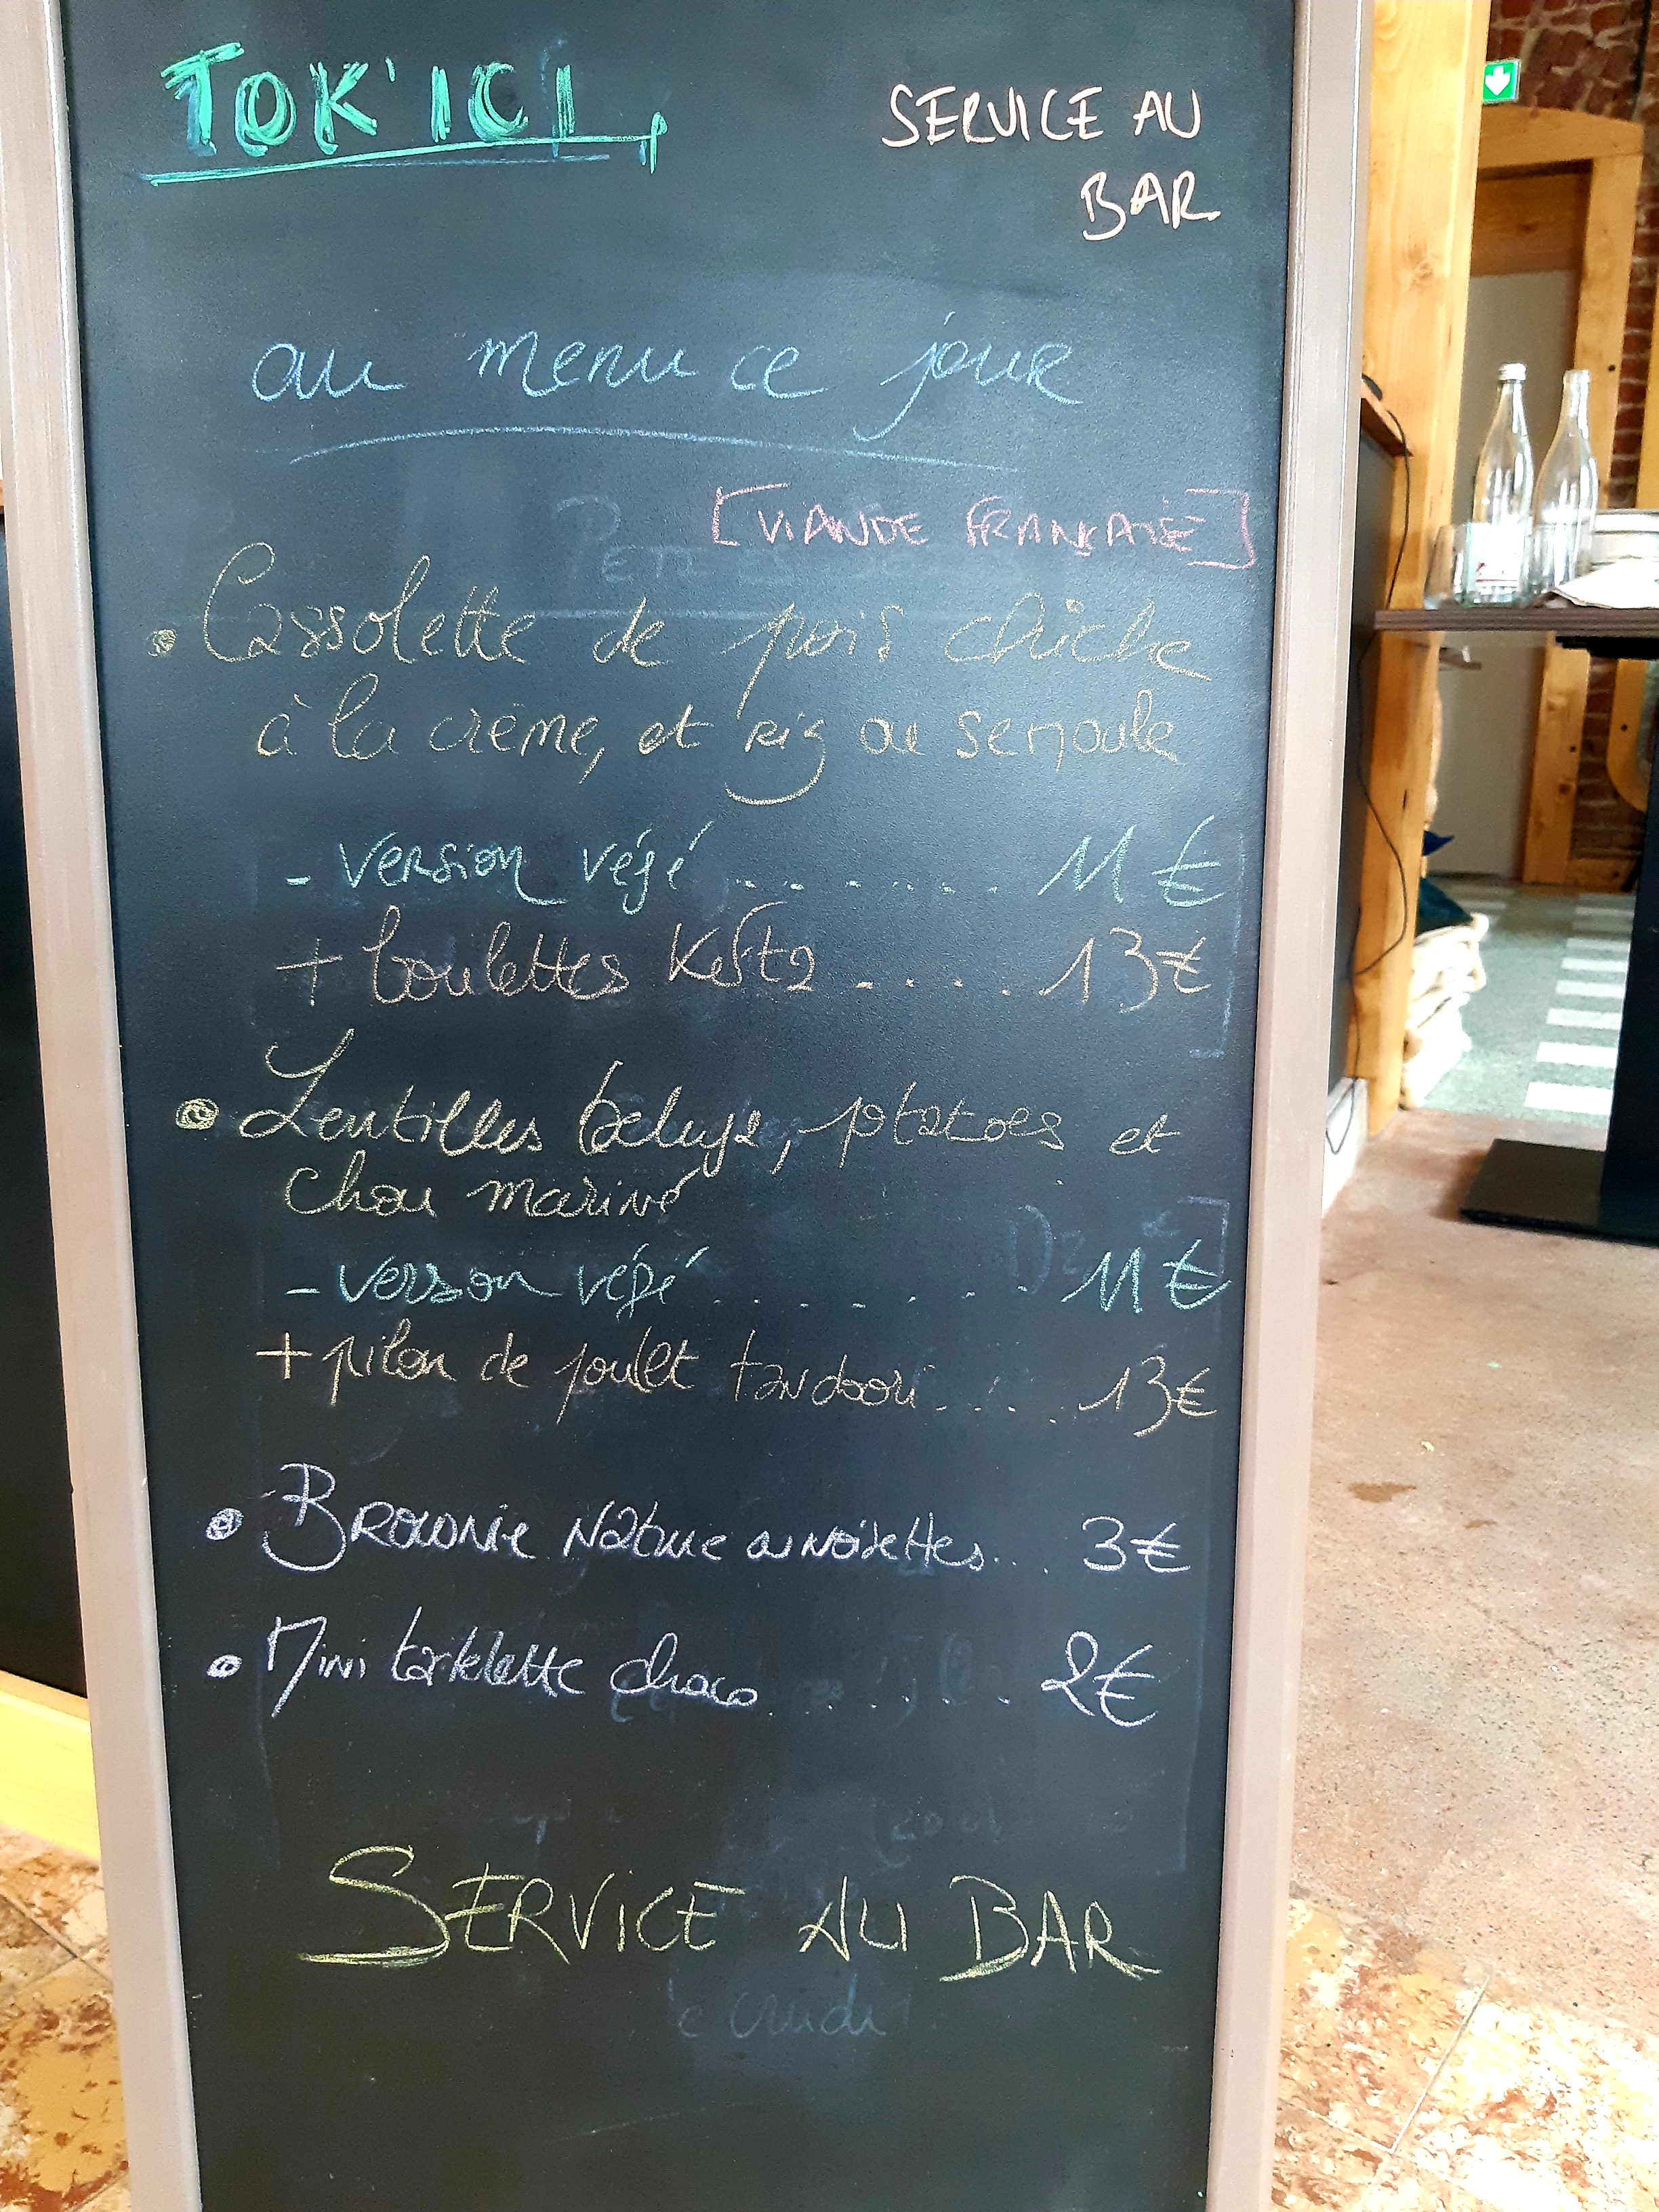 TOK'ICI
SERVICE AU
BAR
au menu ce jour
[VIANDE FRANÇAISE]
• Cassolette de pois chiche
à la crème, et riz ou semoule
- version végé ........ 11 €
+ boulettes Kefta .... 13 €
• Lentilles beluga, potatoes et
chou mariné
- version végé ........ 11 €
+ pilon de poulet tandoori .... 13 €
• BROWNIE Nature ou NOISETTES ... 3 €
• Mini tartelette choco ...... 2 €
SERVICE AU BAR